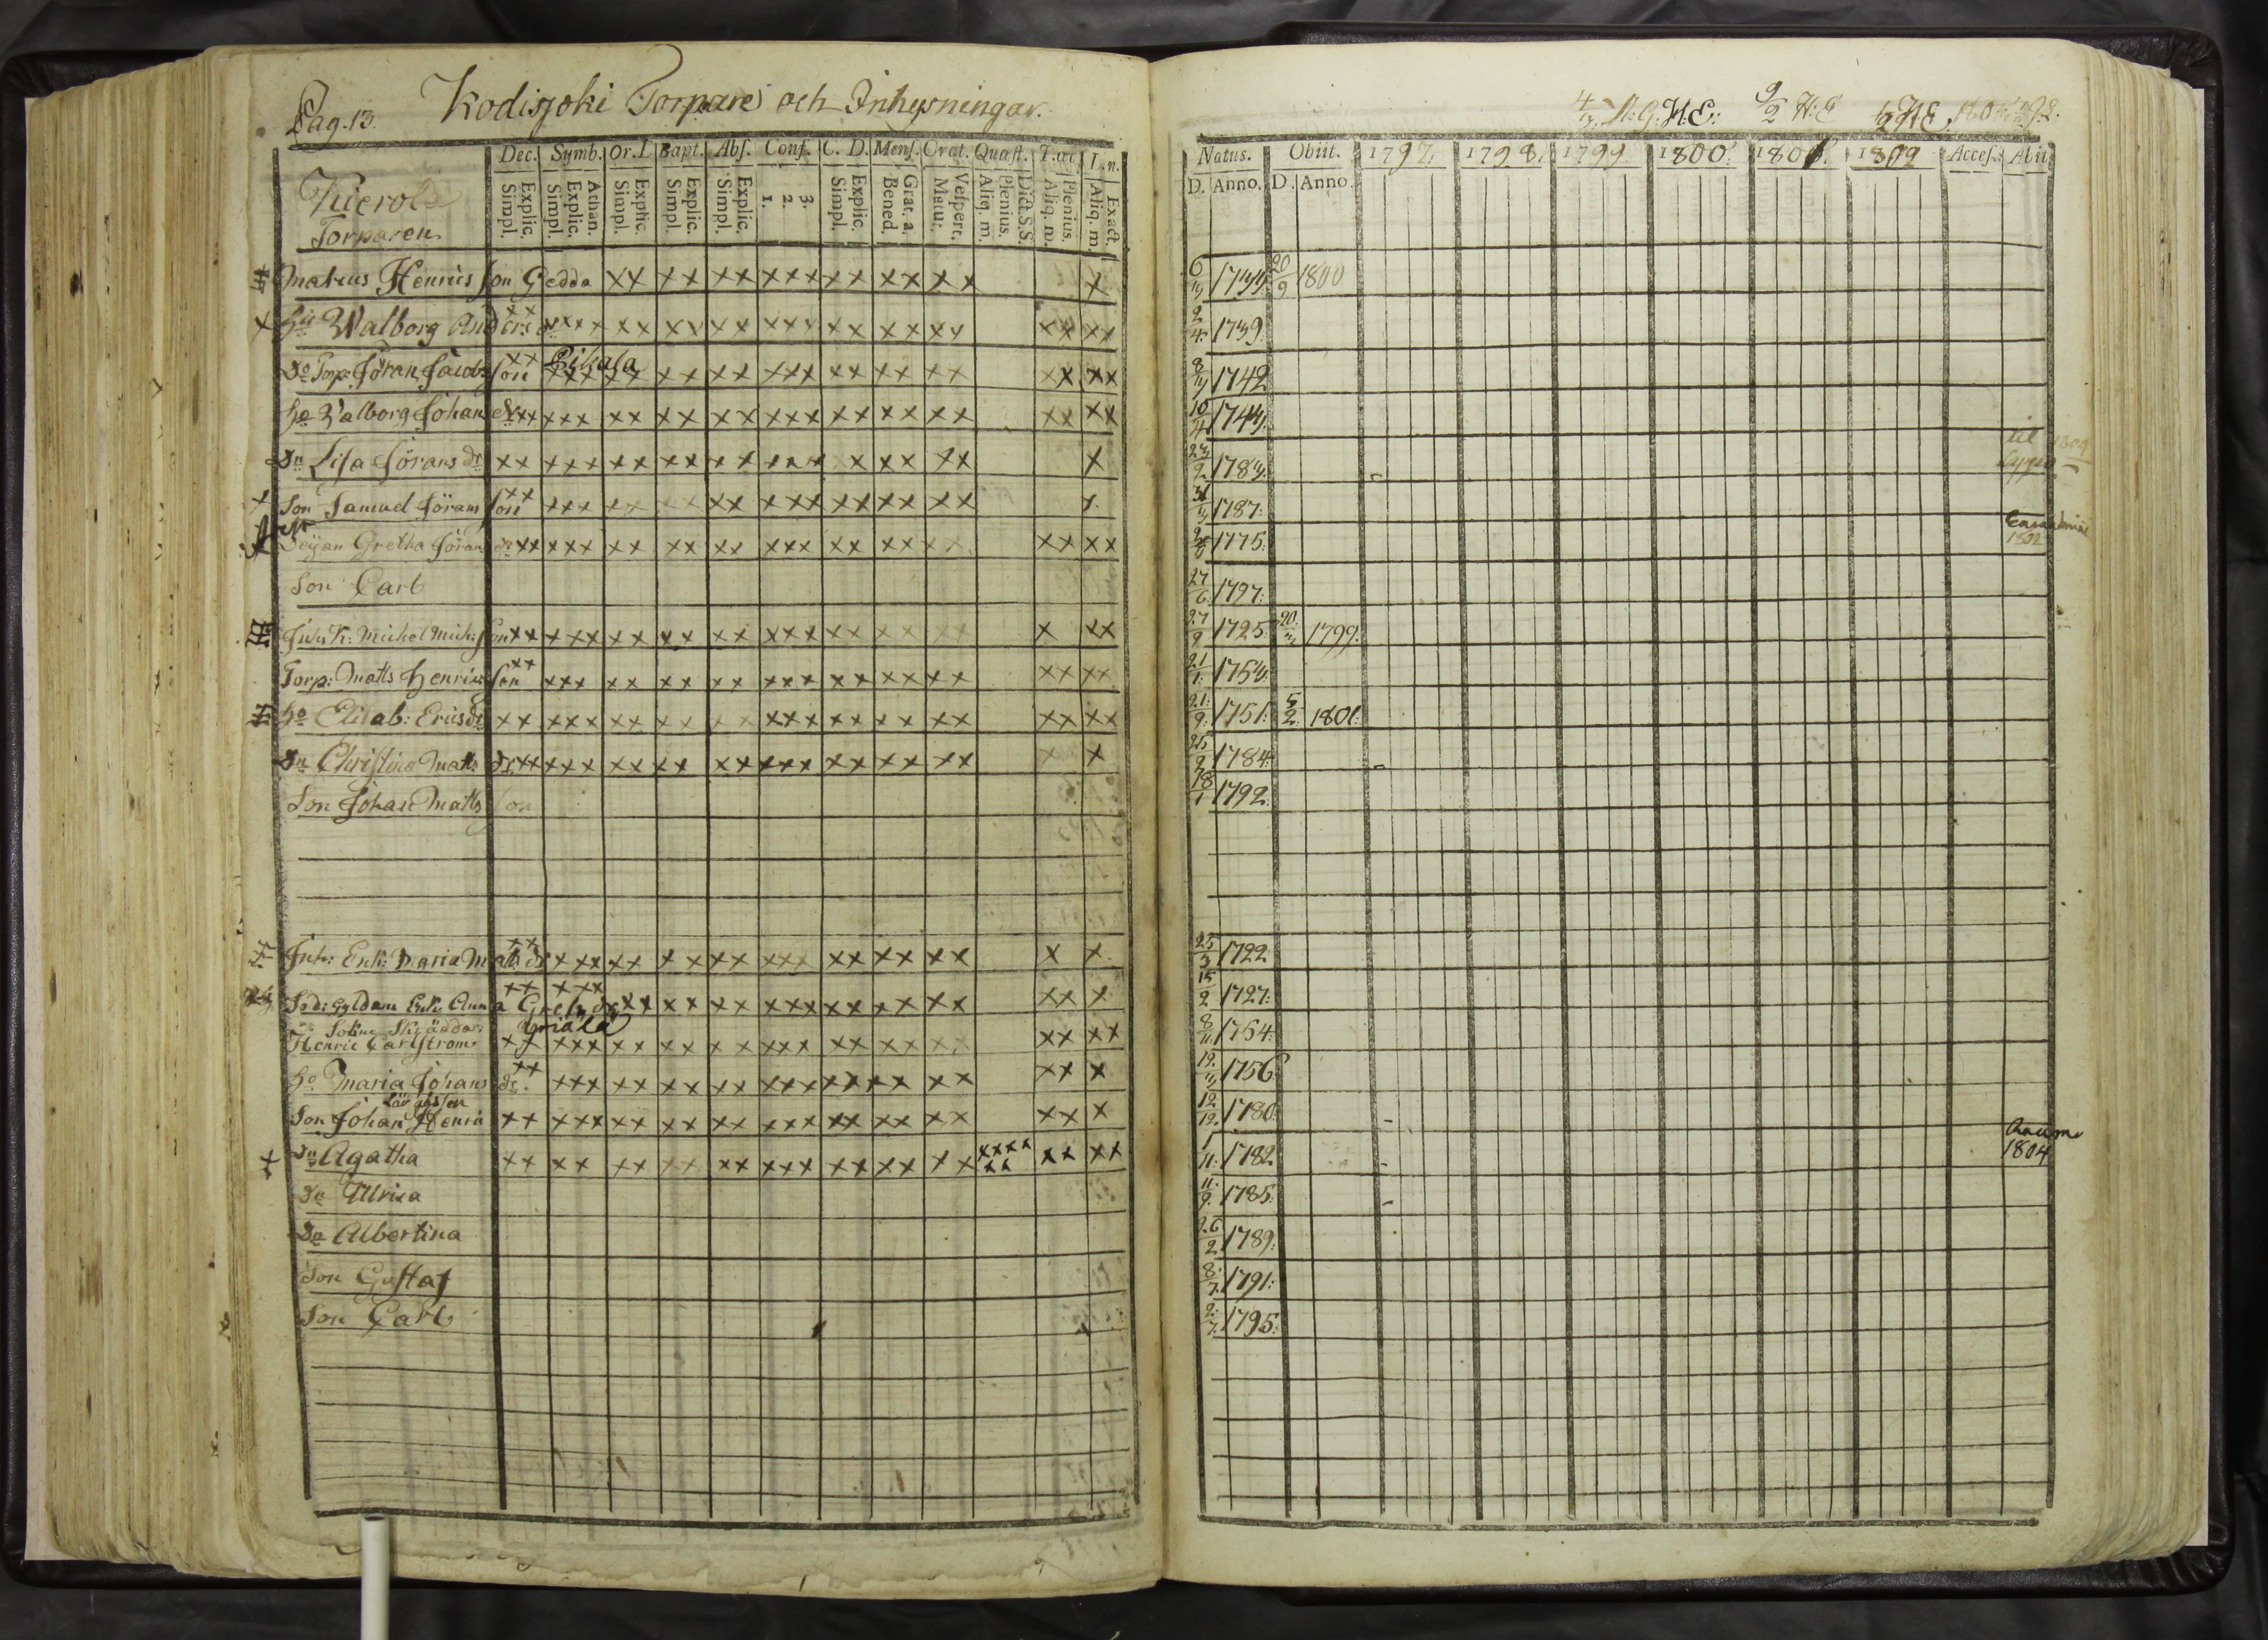 Pag. 13. Kodisjoki Torpare och Inhysningar.
Dec. Symb. Or. D. Bapt. Abs. Conf. C. D. Mens. Orat. Quæst. T. æt. L. n.
Simpl. Explic. Simpl. Explic. Athan. Simpl. Explic. Simpl. Explic. Simpl. Explic. 1. 2. 3. Simpl. Explic. Bened. Grat. a. Matut. Vespert. Aliq. m. Plenius. Dict. S.S. Aliq. m. Plenius. Aliq. m. Exact.
Torparen
Matius Henricsson Gedda xx xx xx xxx xx xx xx x
Hu Walborg Anders dr xx xxx xx xx xx xxx xx xx xx xx xx
Do Torp: Jöran Jacobsson Pihala xx xxx xx xx xx xxx xx xx xx xx xx
Ho Valborg Johans dr xx xxx xx xx xx xxx xx xx xx xx xx
Dr Lisa Jörans dr xx xxx xx xx xx xxx x xx xx x
Son Samuel Jöransson xx xxx xx xx xx xxx xx xx xx x
Gretha Jörans dr xx xxx xx xx xx xxx xx xx xx xx xx
Son Carl
Michel Mich:son xx xxx xx xx xx xxx xx xx xx x xx
Torp: Matts Henricsson xx xxx xx xx xx xxx xx xx xx xx xx
Ho Elisab: Ericsdr xx xxx xx xx xx xxx xx xx xx xx xx
Dr Christina Matts dr xx xxx xx xx xx xxx xx xx xx x x
Son Johan Mattsson
Inh: Enk: Maria Matts dr xx xxx xx xx xx xxx xx xx xx x x
Sold: Gyldam Enk: Anna Grels dr xx xxx xx xx xx xxx xx xx xx xx x
Sokne Skräddar:
Henric Carlström xx xxx xx xx xx xxx xx xx xx xx xx
Ho Maria Johans dr. xx xxx xx xx xx xxx xx xx xx xx x
Son Johan Henric xx xxx xx xx xx xxx xx xx xx xx x
Dr Agatha xx xx xx xx xx xxx xx xx xx xxxx xx xx xx
Dr Ulrica
Dr Albertina
Son Gustaf
Son Carl
Natus. Obiit. 1797. 1798. 1799 1800. 1801. 1802 Acces. Abit.
D. Anno. D. Anno.
1744. 20/9 1800
2/4 1739.
1742
10/4 1744.
1783. til 1804
1787:
1775. 1802
27/6 1797:
27/9 1725. 1799.
21/1 1754.
21/9 1751: 5/2 1801.
1784.
18/1 1792.
1722
15/2 1727:
8/11 1754.
1756
12/12 1780.
1/11 1782 Raumo
1804
11/9 1785.
26/2 1789.
8/7 1791:
2/7 1795.